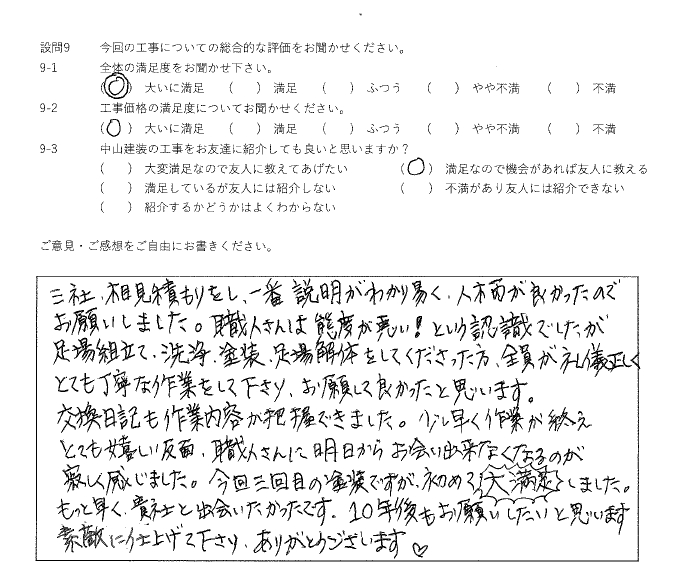 設問9 今回の工事についての総合的な評価をお聞かせください。
9-1 全体の満足度をお聞かせ下さい。
(◎) 大いに満足 ( ) 満足 ( ) ふつう ( ) やや不満 ( ) 不満
9-2 工事価格の満足度についてお聞かせください。
(○) 大いに満足 ( ) 満足 ( ) ふつう ( ) やや不満 ( ) 不満
9-3 中山建装の工事をお友達に紹介しても良いと思いますか?
( ) 大変満足なので友人に教えてあげたい (○) 満足なので機会があれば友人に教える
( ) 満足しているが友人には紹介しない ( ) 不満があり友人には紹介できない
( ) 紹介するかどうかはよくわからない
ご意見・ご感想をご自由にお書きください。
三社、相見積もりをし、一番 説明がわかり易く、人柄が良かったので
お願いしました。職人さんは 態度が悪い!という認識でしたが
足場組立て、洗浄、塗装、足場解体をしてくださった方、全員が礼儀正しく
とても丁寧な作業をして下さり、お願して良かったと思います。
交換日記も作業内容が把握できました。少し早く作業が終え
とても嬉しい反面、職人さんに明日からお会い出来なくなるのが
寂しく感じました。今回三回目の塗装ですが、初めて大満足しました。
もっと早く、貴社と出会いたかったです。10年後もお願いしたいと思います
素敵に仕上げて下さり、ありがとうございます♡